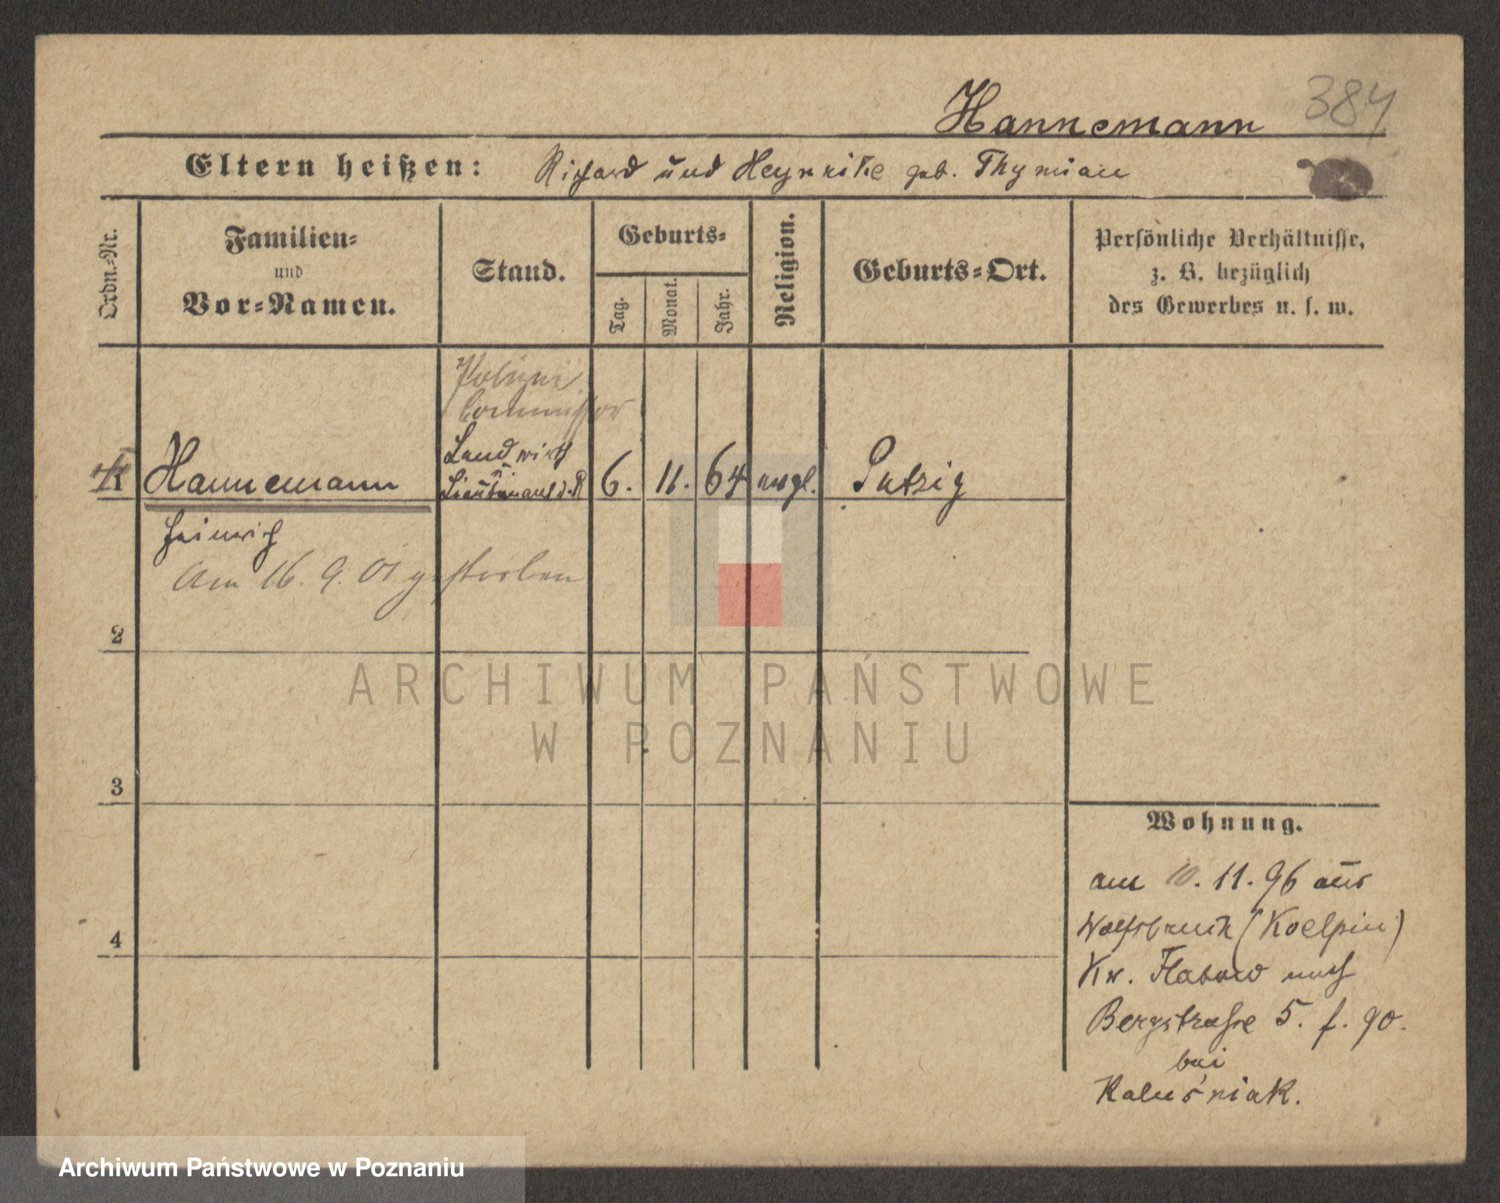 Hannemann 384
Eltern heißen: Richard und Heynrike geb. Thymian
Ordn.-Nr.
Familien-
und
Vor-Namen.
Stand.
Geburts-
Tag.
Monat.
Jahr.
Religion.
Geburts-Ort.
Persönliche Verhältnisse,
z. B. bezüglich
des Gewerbes u. s. w.
Polizei
Commissar
Landwirth
u.
Lieutenant d. R
Hannemann 6. 11. 64 evgl. Putzig
Heinrich
Am 16. 9. 01 gestorben
2
3
4
Wohnung.
am 10. 11. 96 aus
Wolfsbruch (Koelpin)
Kr. Flatow nach
Bergstraße 5. f. 90.
bei
Kaluśniak.
ARCHIWUM PAŃSTWOWE
W POZNANIU
Archiwum Państwowe w Poznaniu